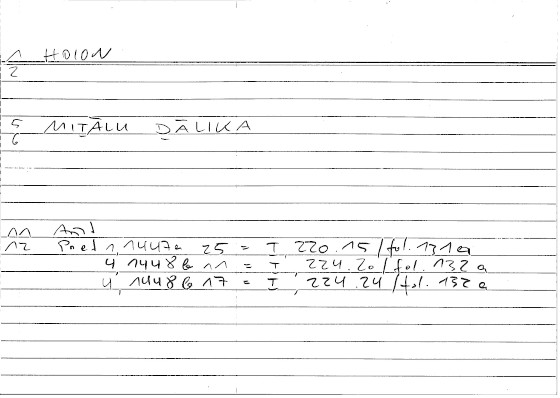 1 HDION
2
5 MIṮĀLU ḎĀLIKA
6
11 Ant
12 Pned 4, 1447a 25 = I, 220.15/fol. 131a
4, 1448b 11 = I, 224.20/fol. 132a
4, 1448b 17 = I, 224.24/fol. 132a